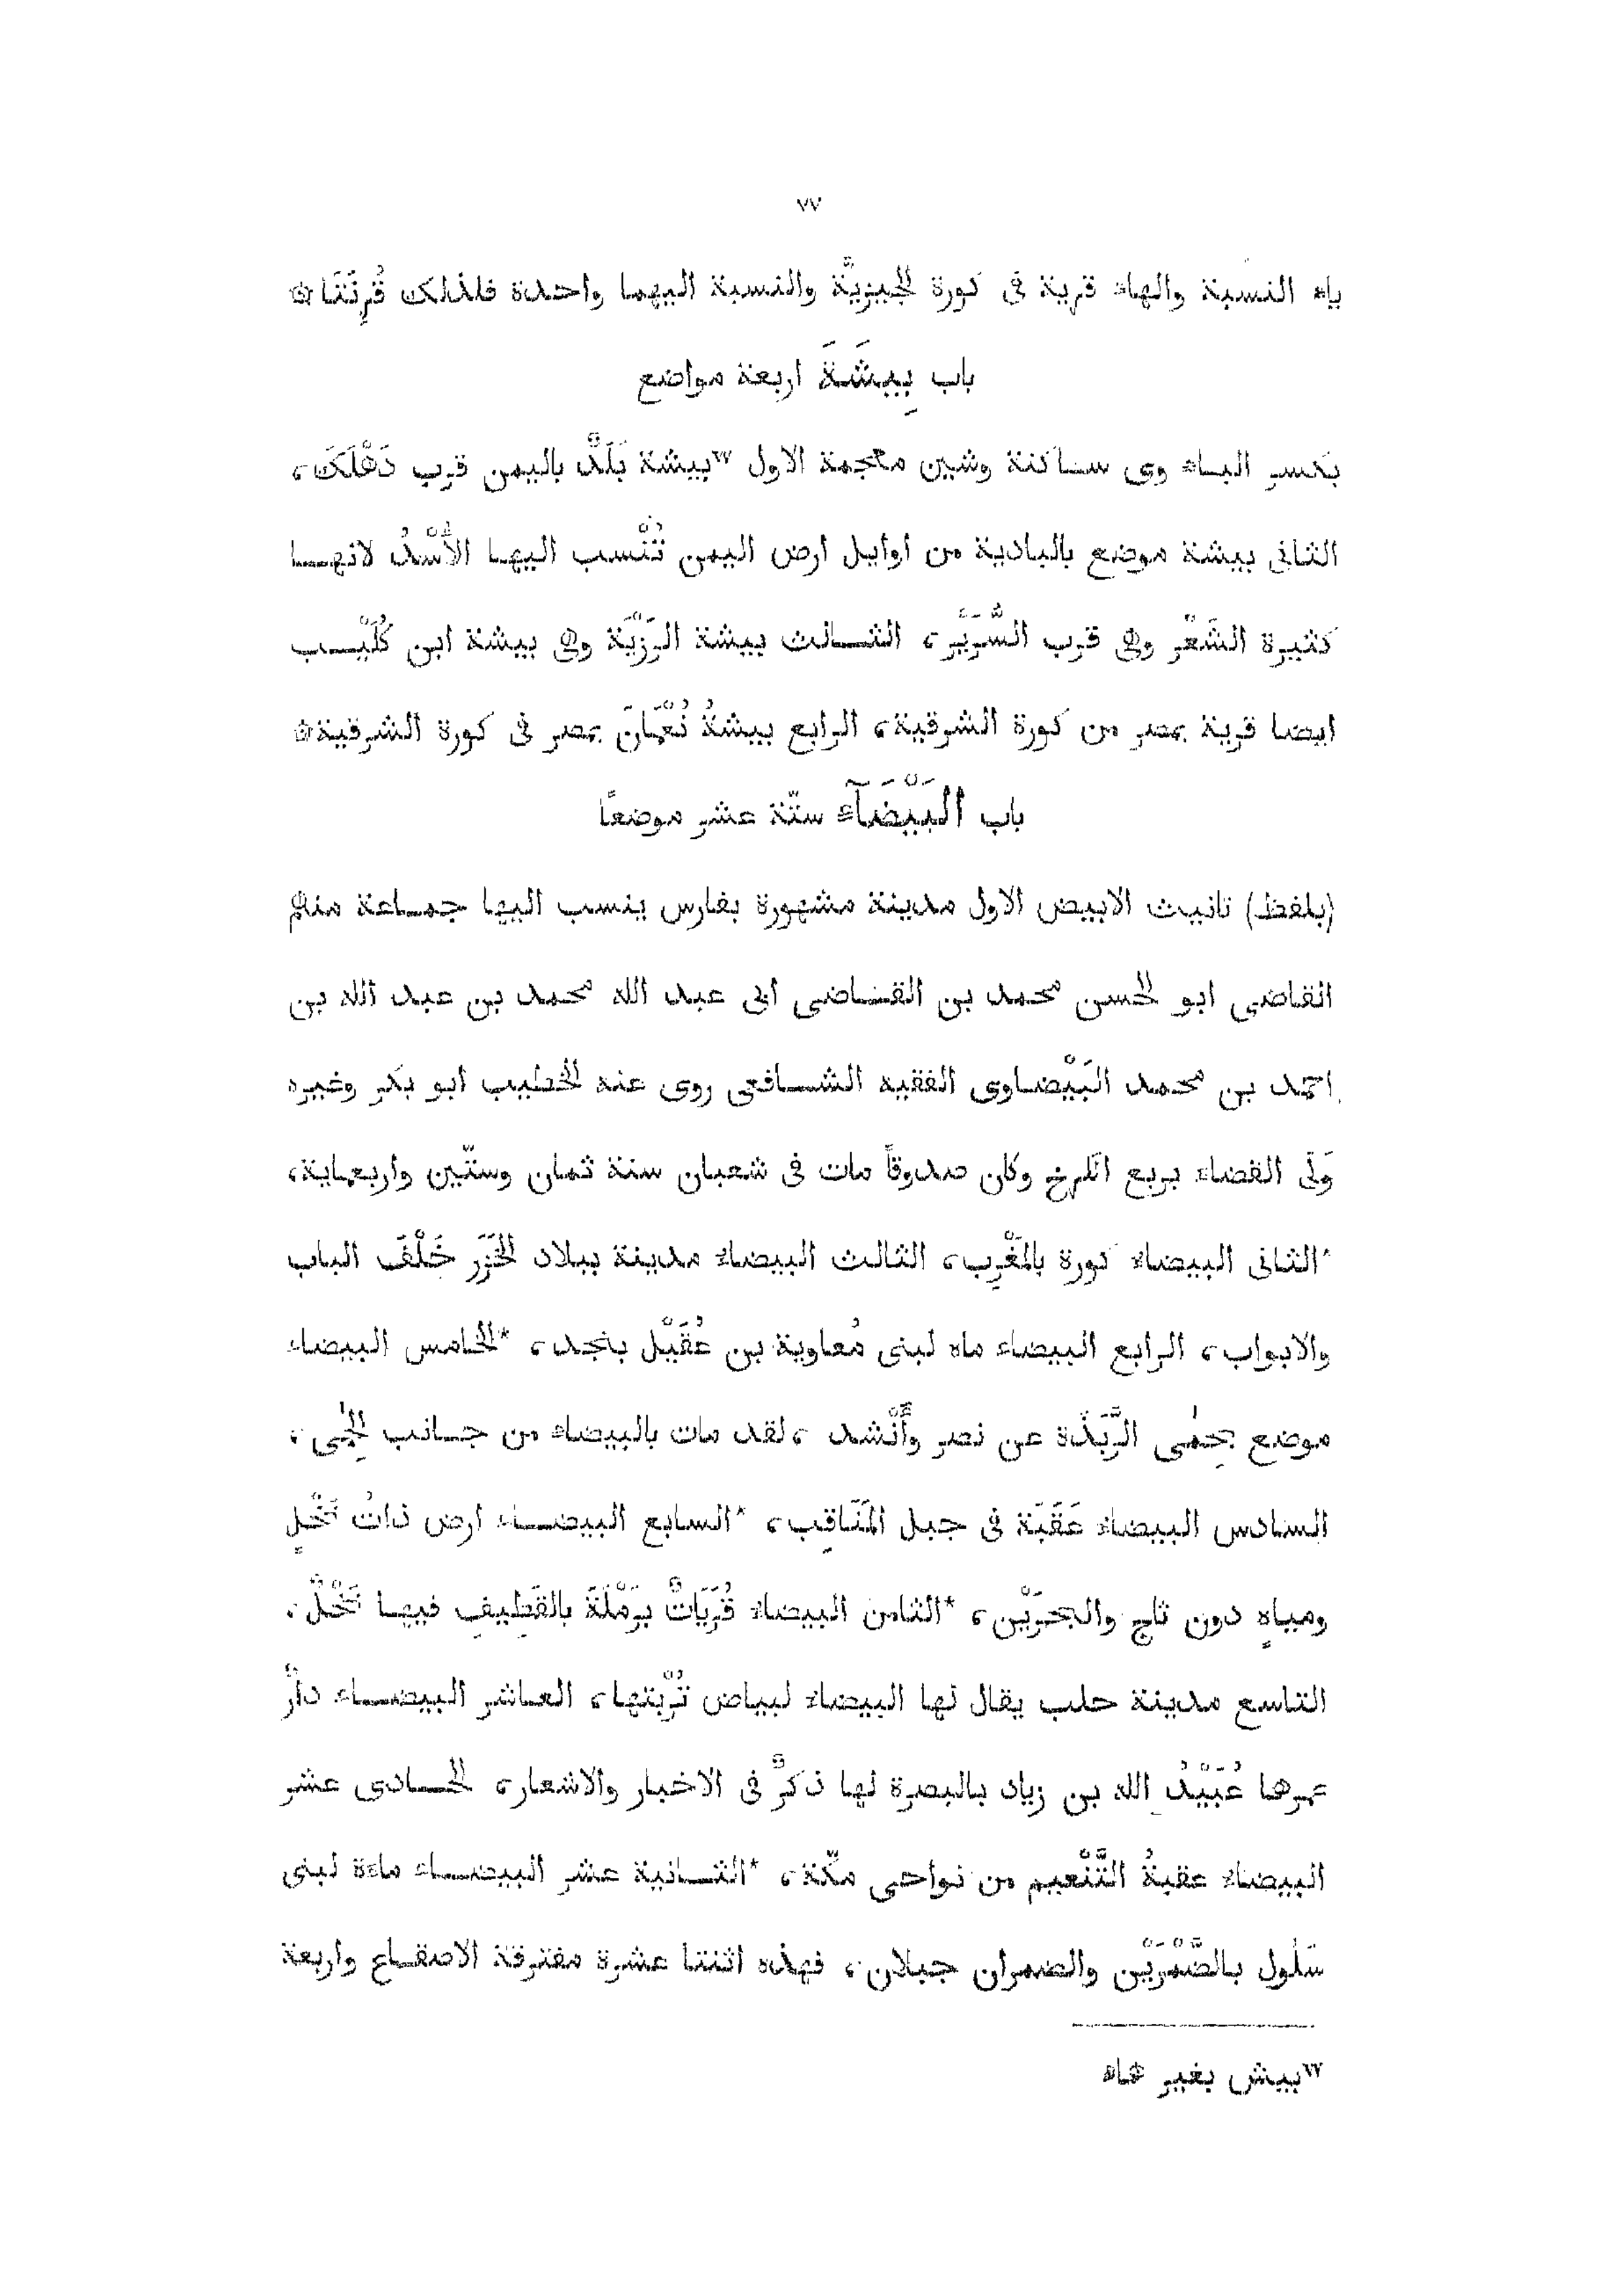 ٧٧
ياء النسبة والهاء قرية فى كورة الجيزيّة والنسبة اليهما واحدة فلذلك قُرِنَتَا ۞
باب بِيشَةَ اربعة مواضع
بكسر الباء وى ساكنة وشين معجمة الاول ʷبيشة بَلَدٌ باليمن قرب دَهْلَكَ،
الثانى بيشة موضع بالبادية من اوايل ارض اليمن تُنْسب اليها الأُسْدُ لانها
كثيرة الشَعْر وهى قرب السُّرَيَّر، الثالث بيشة الرَزْيَّة وهى بيشة ابن كُلَيْب
ايضا قرية بمصر من كورة الشرقية، الرابع بيشةُ نُعْمَانَ بمصر فى كورة الشرقية ۞
باب الْبَيْضَآء ستّة عشر موضعًا
(بلفظ) تانيث الابيض الاول مدينة مشهورة بفارس ينسب اليها جماعة منهم
القاضى ابو الحسن محمد بن القاضى ابى عبد الله محمد بن عبد الله بن
احمد بن محمد البَيْضاوى الفقيه الشافعى روى عنه الخطيب ابو بكر وغيره
وَلّى القضاء بربع الكرخ وكان صدوقاً مات فى شعبان سنة ثمان وستّين واربعماية،
*الثانى البيضاء كورة بالمَغْرِب، الثالث البيضاء مدينة ببلاد الخَزَر خَلْفَ الباب
والابواب، الرابع البيضاء ماء لبنى مُعاوية بن عُقَيْل بنجد، *الخامس البيضاء
موضع بحِمٰى الرَّبَذَة عن نصر وأَنْشد ، لقد مات بالبيضاء من جانب الحِمٰى،
السادس البيضاء عَقَبَة فى جبل المَنَاقِب، *السابع البيضاء ارض ذاتُ نَخْلٍ
ومياهٍ دون ثاج والبحرَيْن، *الثامن البيضاء قُرَيَاتٌ برَمْلَةَ بالقَطِيفِ فيها نَخْلٌ،
التاسع مدينة حلب يقال لها البيضاء لبياض تُرْبتها، العاشر البيضاء دارٌ
عمرها عُبَيْدُ الله بن زياد بالبصرة لها ذكرٌ فى الاخبار والاشعار، الحادى عشر
البيضاء عقبةُ التَّنْعيم من نواحى مكّة، *الثانية عشر البيضاء ماءة لبنى
سَلُول بالضَّمْرَيْن والضمران جبلان، فهذه اثنتا عشرة مفترقة الاصقاع واربعة
ʷبيش بغير هاء